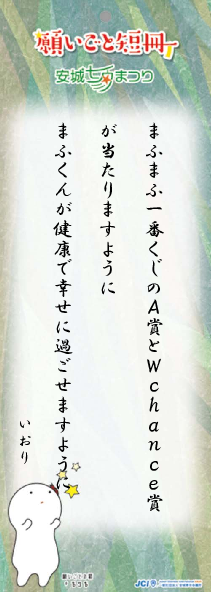 願いごと短冊
安城七夕まつり
まふまふ一番くじのA賞とWchance賞
が当たりますように
まふくんが健康で幸せに過ごせますように
いおり
JCI